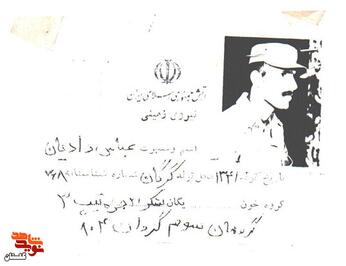 ارتش جمهوری اسلامی ایران
نیروی زمینی
اسم و شهرت عباس دادیان
تاریخ تولد ۱۳۴۱ محل تولد گرگان شماره شناسنامه ۷۶۸
گروه خون ........ یگان لشگر ... تیپ ۳
گروهان سوم گردان ۸۰۴
نوید شاهد
گلستان